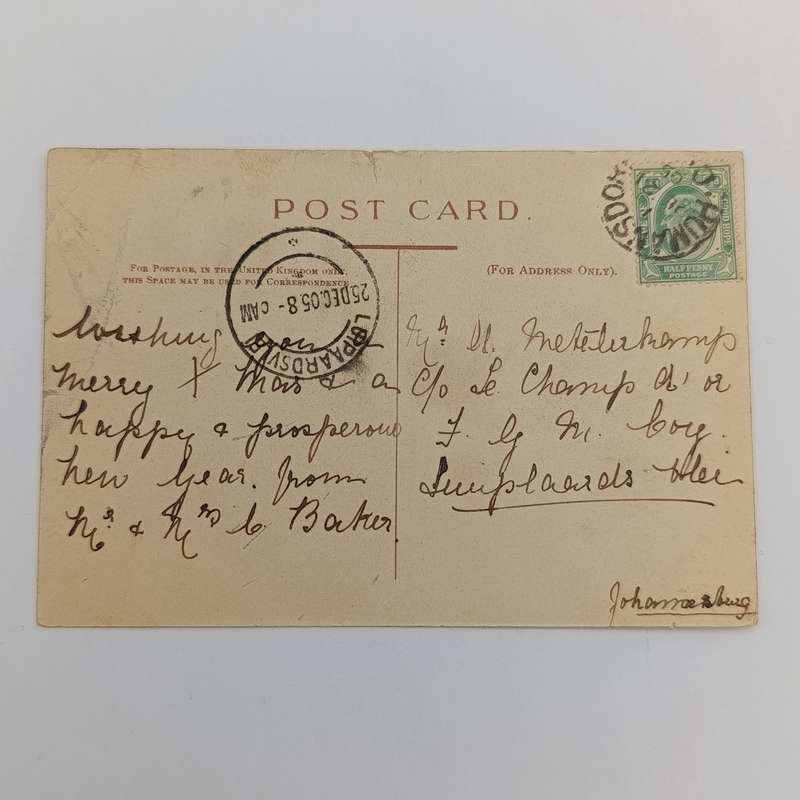 POST CARD.
FOR POSTAGE, IN THE UNITED KINGDOM ONLY,
THIS SPACE MAY BE USED FOR CORRESPONDENCE
(FOR ADDRESS ONLY).
HALFPENNY
POSTAGE
HUMANSDORP
25 DEC.05 8 - AM
Wishing you a
merry X mas & a
happy & prosperous
new Year. from
Mr & Mrs C Baker
Mr
C/o Le Champ d'or
F. G M. Coy.
Johannesburg